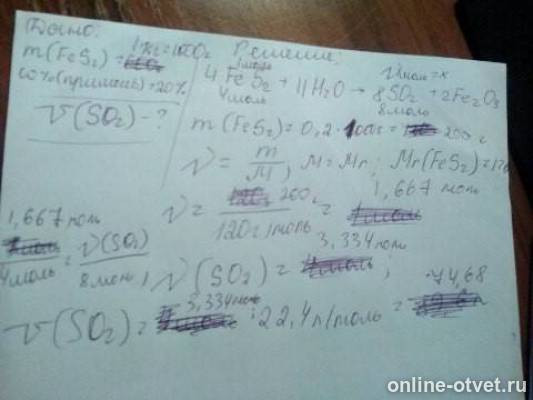 Дано:
m(FeS2) = 1кг = 1000г
ω%(примесь) = 20%
V(SO2) - ?
Решение:
1моль
4FeS2 + 11H2O → 8SO2 + 2Fe2O3
4моль 8моль
m(FeS2) = 0,2 · 1000г = 200 г
ν = m/M; M = Mr; Mr(FeS2) = 120
ν = 200г / 120г/моль = 1,667 моль
1,667 моль / 4моль = ν(SO2) / 8моль; ν(SO2) = 3,334моль;
V(SO2) = 3,334моль · 22,4л/моль = 74,68
online-otvet.ru